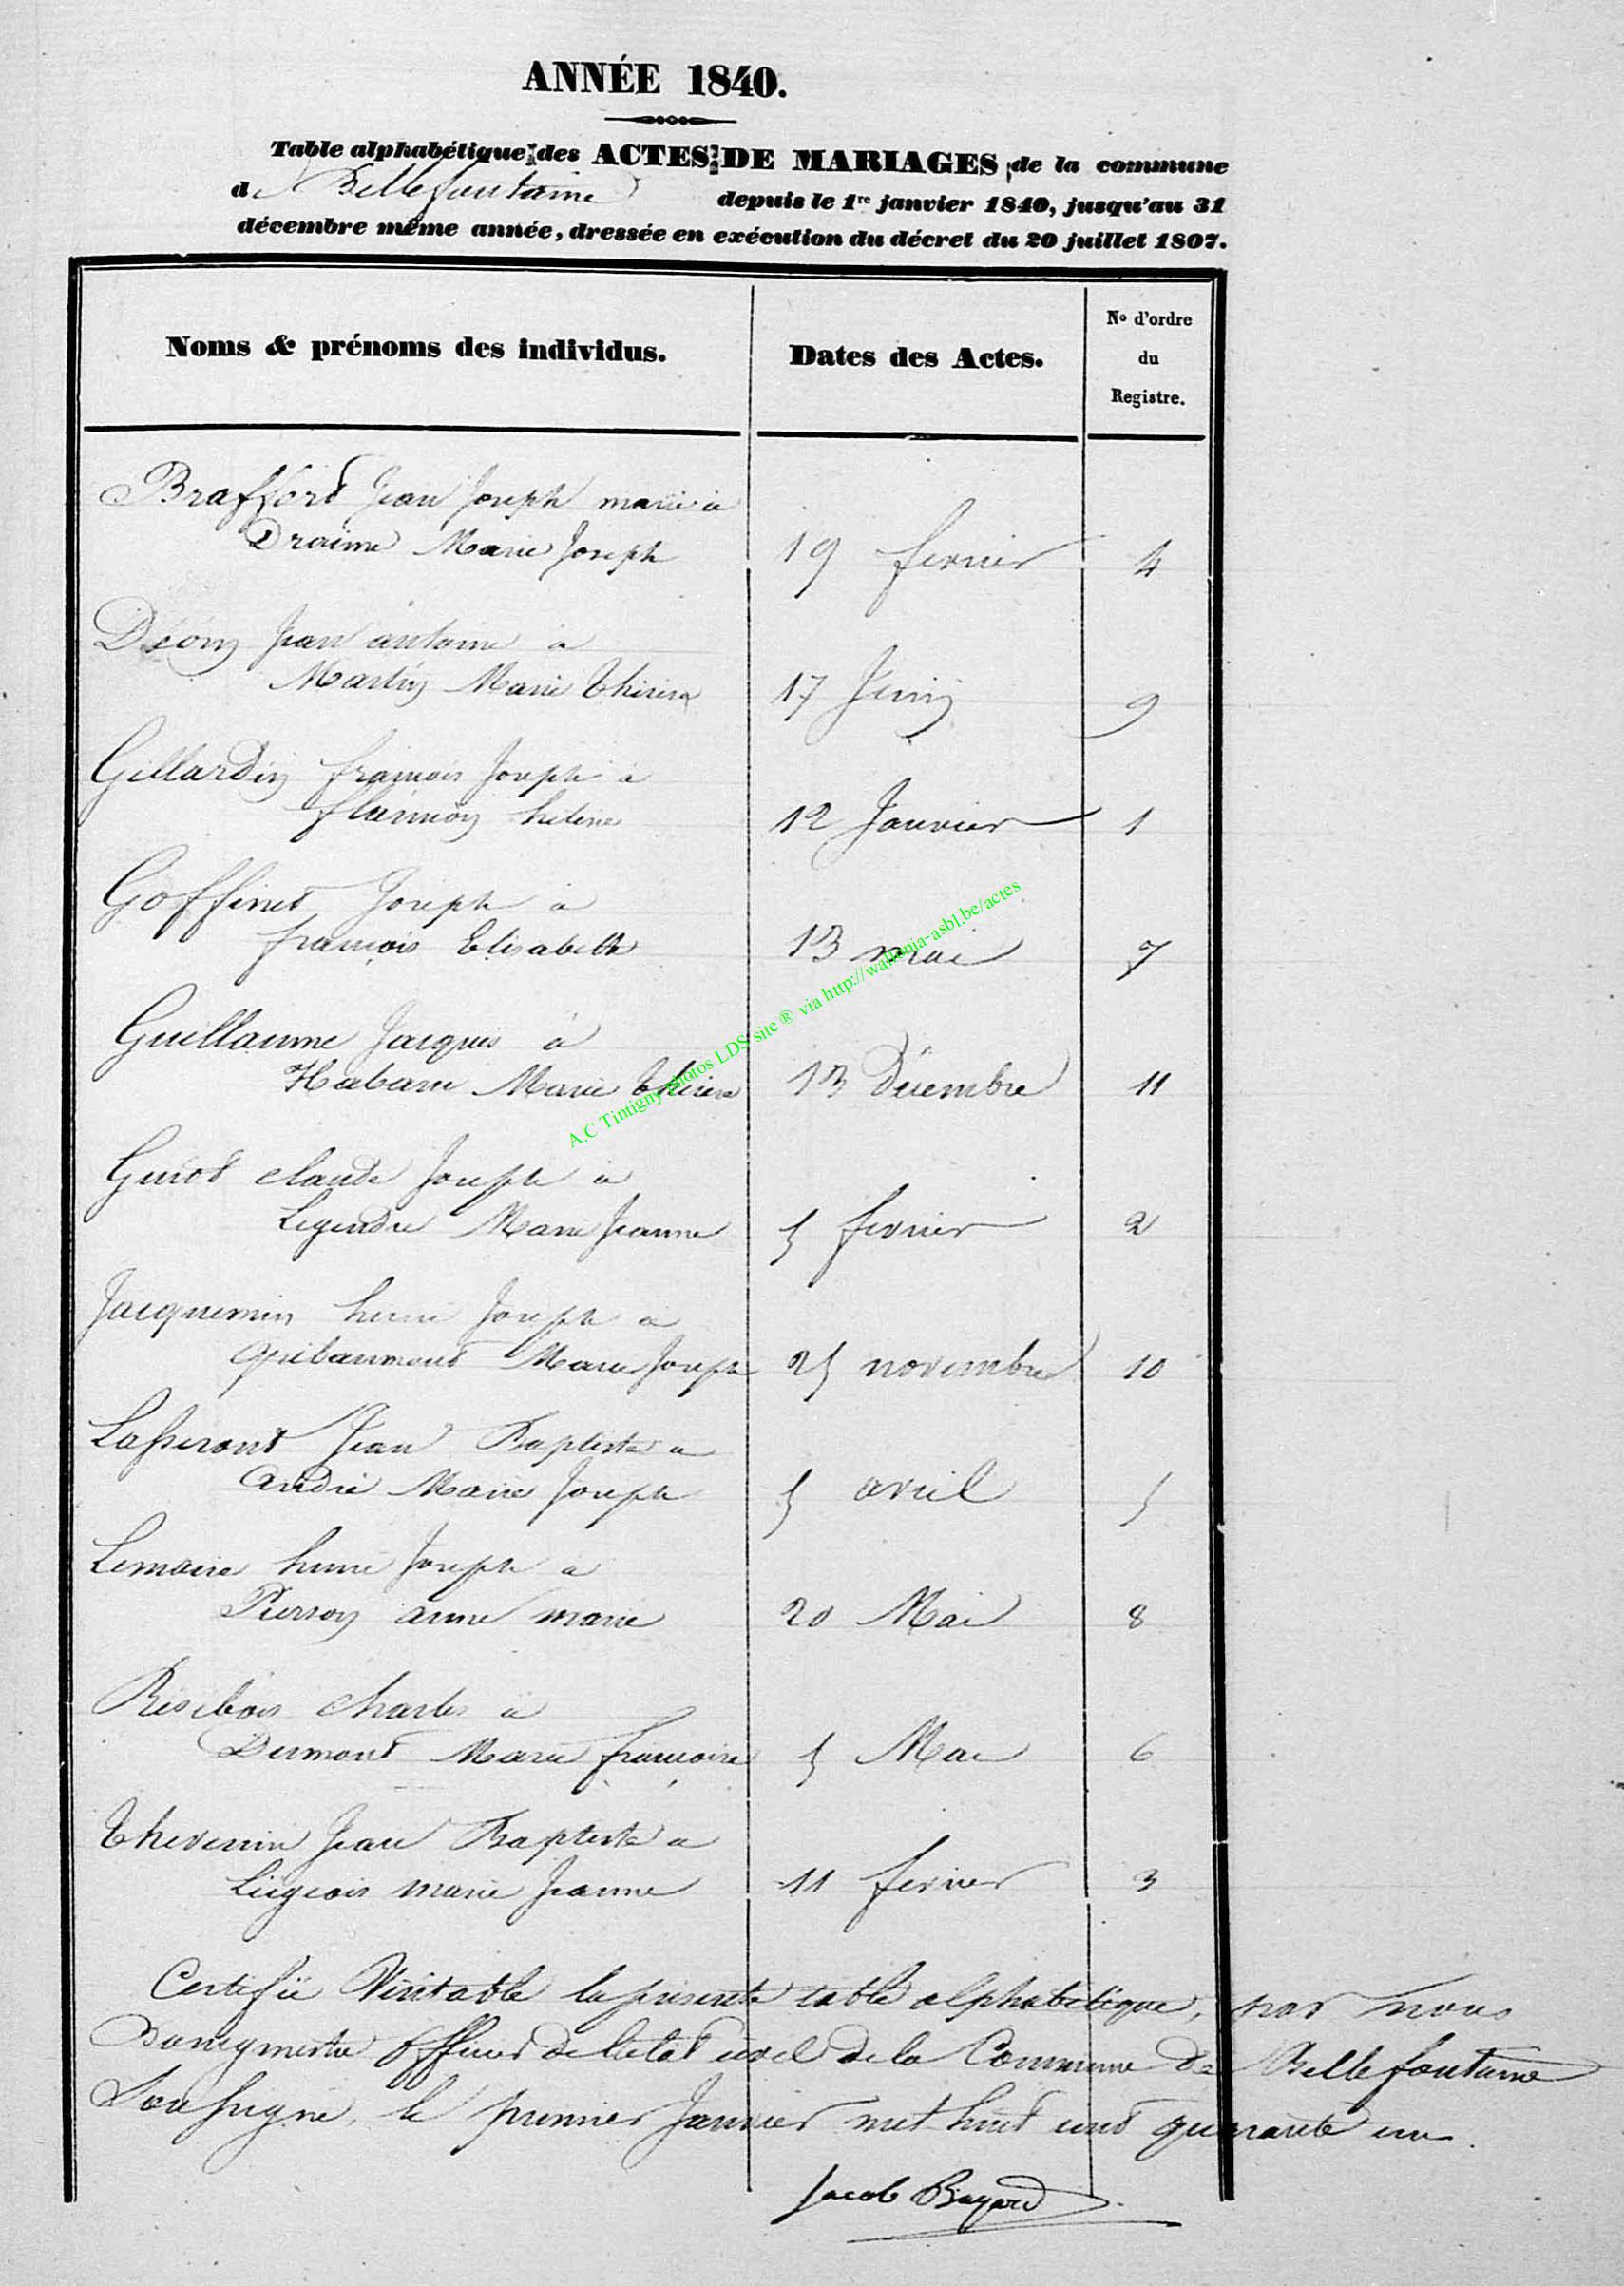 ANNÉE 1840.
Table alphabétique des ACTES DE MARIAGES de la commune
de Bellefontaine depuis le 1re janvier 1840, jusqu'au 31
décembre même année, dressée en exécution du décret du 20 juillet 1807.
Noms & prénoms des individus. Dates des Actes. No d'ordre du Registre.
Braffort Jean Joseph marié à
Draime Marie Joseph 19 fevrier 4
Jean antoine à
Martin Marie Thérèse 17 Juin 9
Gillardin françois Joseph à
hélène 12 Janvier 1
Goffinet Joseph à
françois Elisabeth 13 mai 7
Guillaume Jacques à
Habaru Marie Thérèse 13 Décembre 11
Guiot claude Joseph à
Legendre Marie Jeanne 5 fevrier 2
Jacquemin henri Joseph à
Gribaumont Marie Joseph 25 novembre 10
Jean Baptiste à
André Marie Joseph 5 avril 5
Lemaire henri Joseph à
Pierson anne marie 20 Mai 8
Resibois charles à
Dumont Marie françoise 5 Mai 6
Thevenin Jean Baptiste à
Liégeois marie Jeanne 11 fevrier 3
Certifié Véritable la présente table alphabétique, par nous
Bourgmestre officier de l'état civil de la Commune de Bellefontaine
Soussigné, le premier Janvier mil huit cent quarante un.
Jacob Bayard
A.C Tintigny photos LDS site ® via http://wallonia-asbl.be/actes